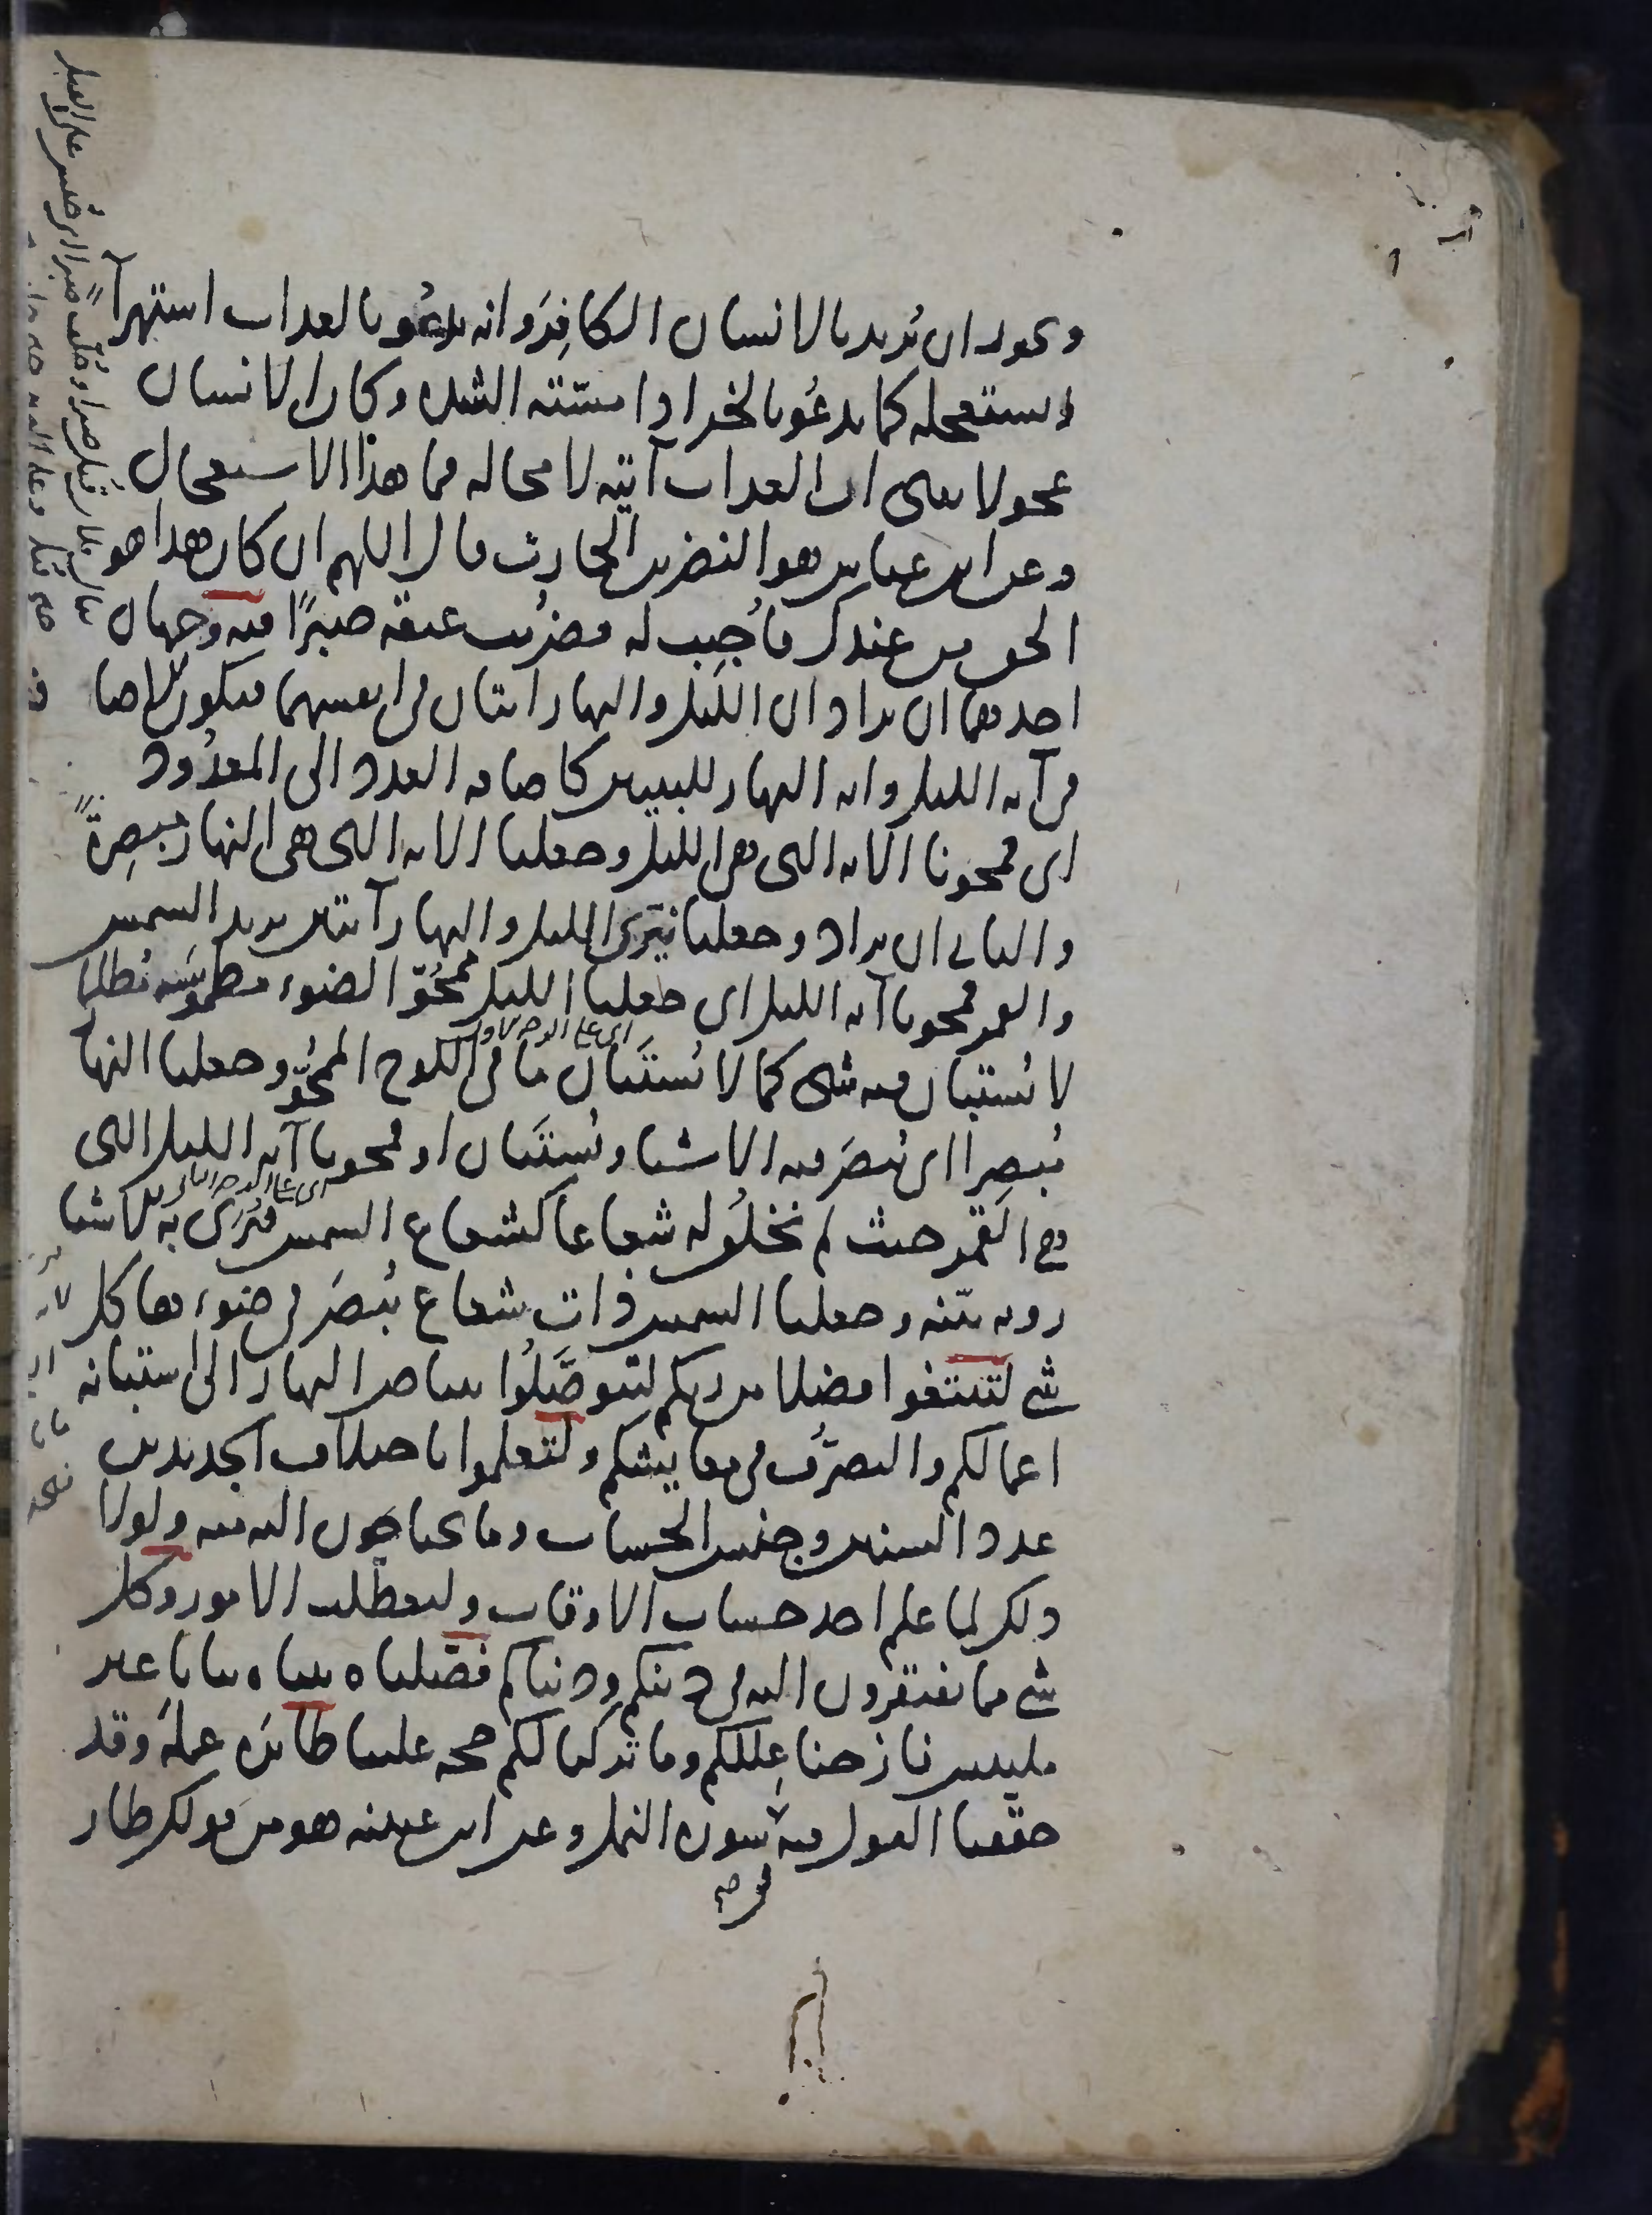 ويجوز ان يُريد بالانسان الكافِرَ وانه يدعُو بالعذاب استهزآ
ويستعجله كما يدعُو بالخير اذا مسّته الشدة وكان الانسان
عجولا يعنى ان العذاب آتيه لا محالة فما هذا الاستعجال
وعن ابن عباس هو النضر بن الحارث قال اللهم ان كان هذا هو
الحق من عندك فاُجيب له فضُربت عنقه صبرًا فيه وجهان
احدهما ان يراد ان الليل والنهار ايتان فى انفسهما فتكون الاضا
فى آية الليل واية النهار للتبيين كاضافة العدد الى المعدُود
اى فمحونا الاية التى هى الليل وجعلنا الاية التى هى النهار مبصِرةً
والثانى ان يراد وجعلنا نيّرى الليل والنهار آيتين يريد الشمس
والقمر فمحونا آية الليل اى جعلنا الليل ممحُوّ الضوء مطموسَه مُظلما
اى على الوجه الاول
لا يُستبان فيه شى كما لا يُستَبان ما فى اللوح الممحُوّ وجعلنا النها
مُبصِرا اى يُبصَر فيه الاشيا ويُستَبان او فمحونا آية الليل التى
اى على الوجه الثانى
هى القمر حيث لم نخلُق له شعاعا كشعاع الشمس فتُرَى به الاشيا
رويه بيّنه وجعلنا الشمس ذات شعاع يُبصَر فى ضوءها كل
شى لتبتغوا فضلا من ربكم لتتوصَّلُوا ببياض النهار الى استبانة
اعمالكم والتصرّف فى معايشكم ولتعلموا باختلاف الجديدين
عدد السنين وجنس الحساب وما تحتاجون اليه منه ولولا
ذلك لما علم احد حساب الاوقات ولتعطلت الامور وكل
شى مما تفتقرون اليه فى دينكم ودنياكم فصّلناه بيناه بيانا غير
ملتبس فازحنا عِللكم وما تركنا لكم حجه علينا طائره عملهُ وقد
حققنا القول فيه سورة النمل وعن ابن عيينه هو من قولك طار
فى صح